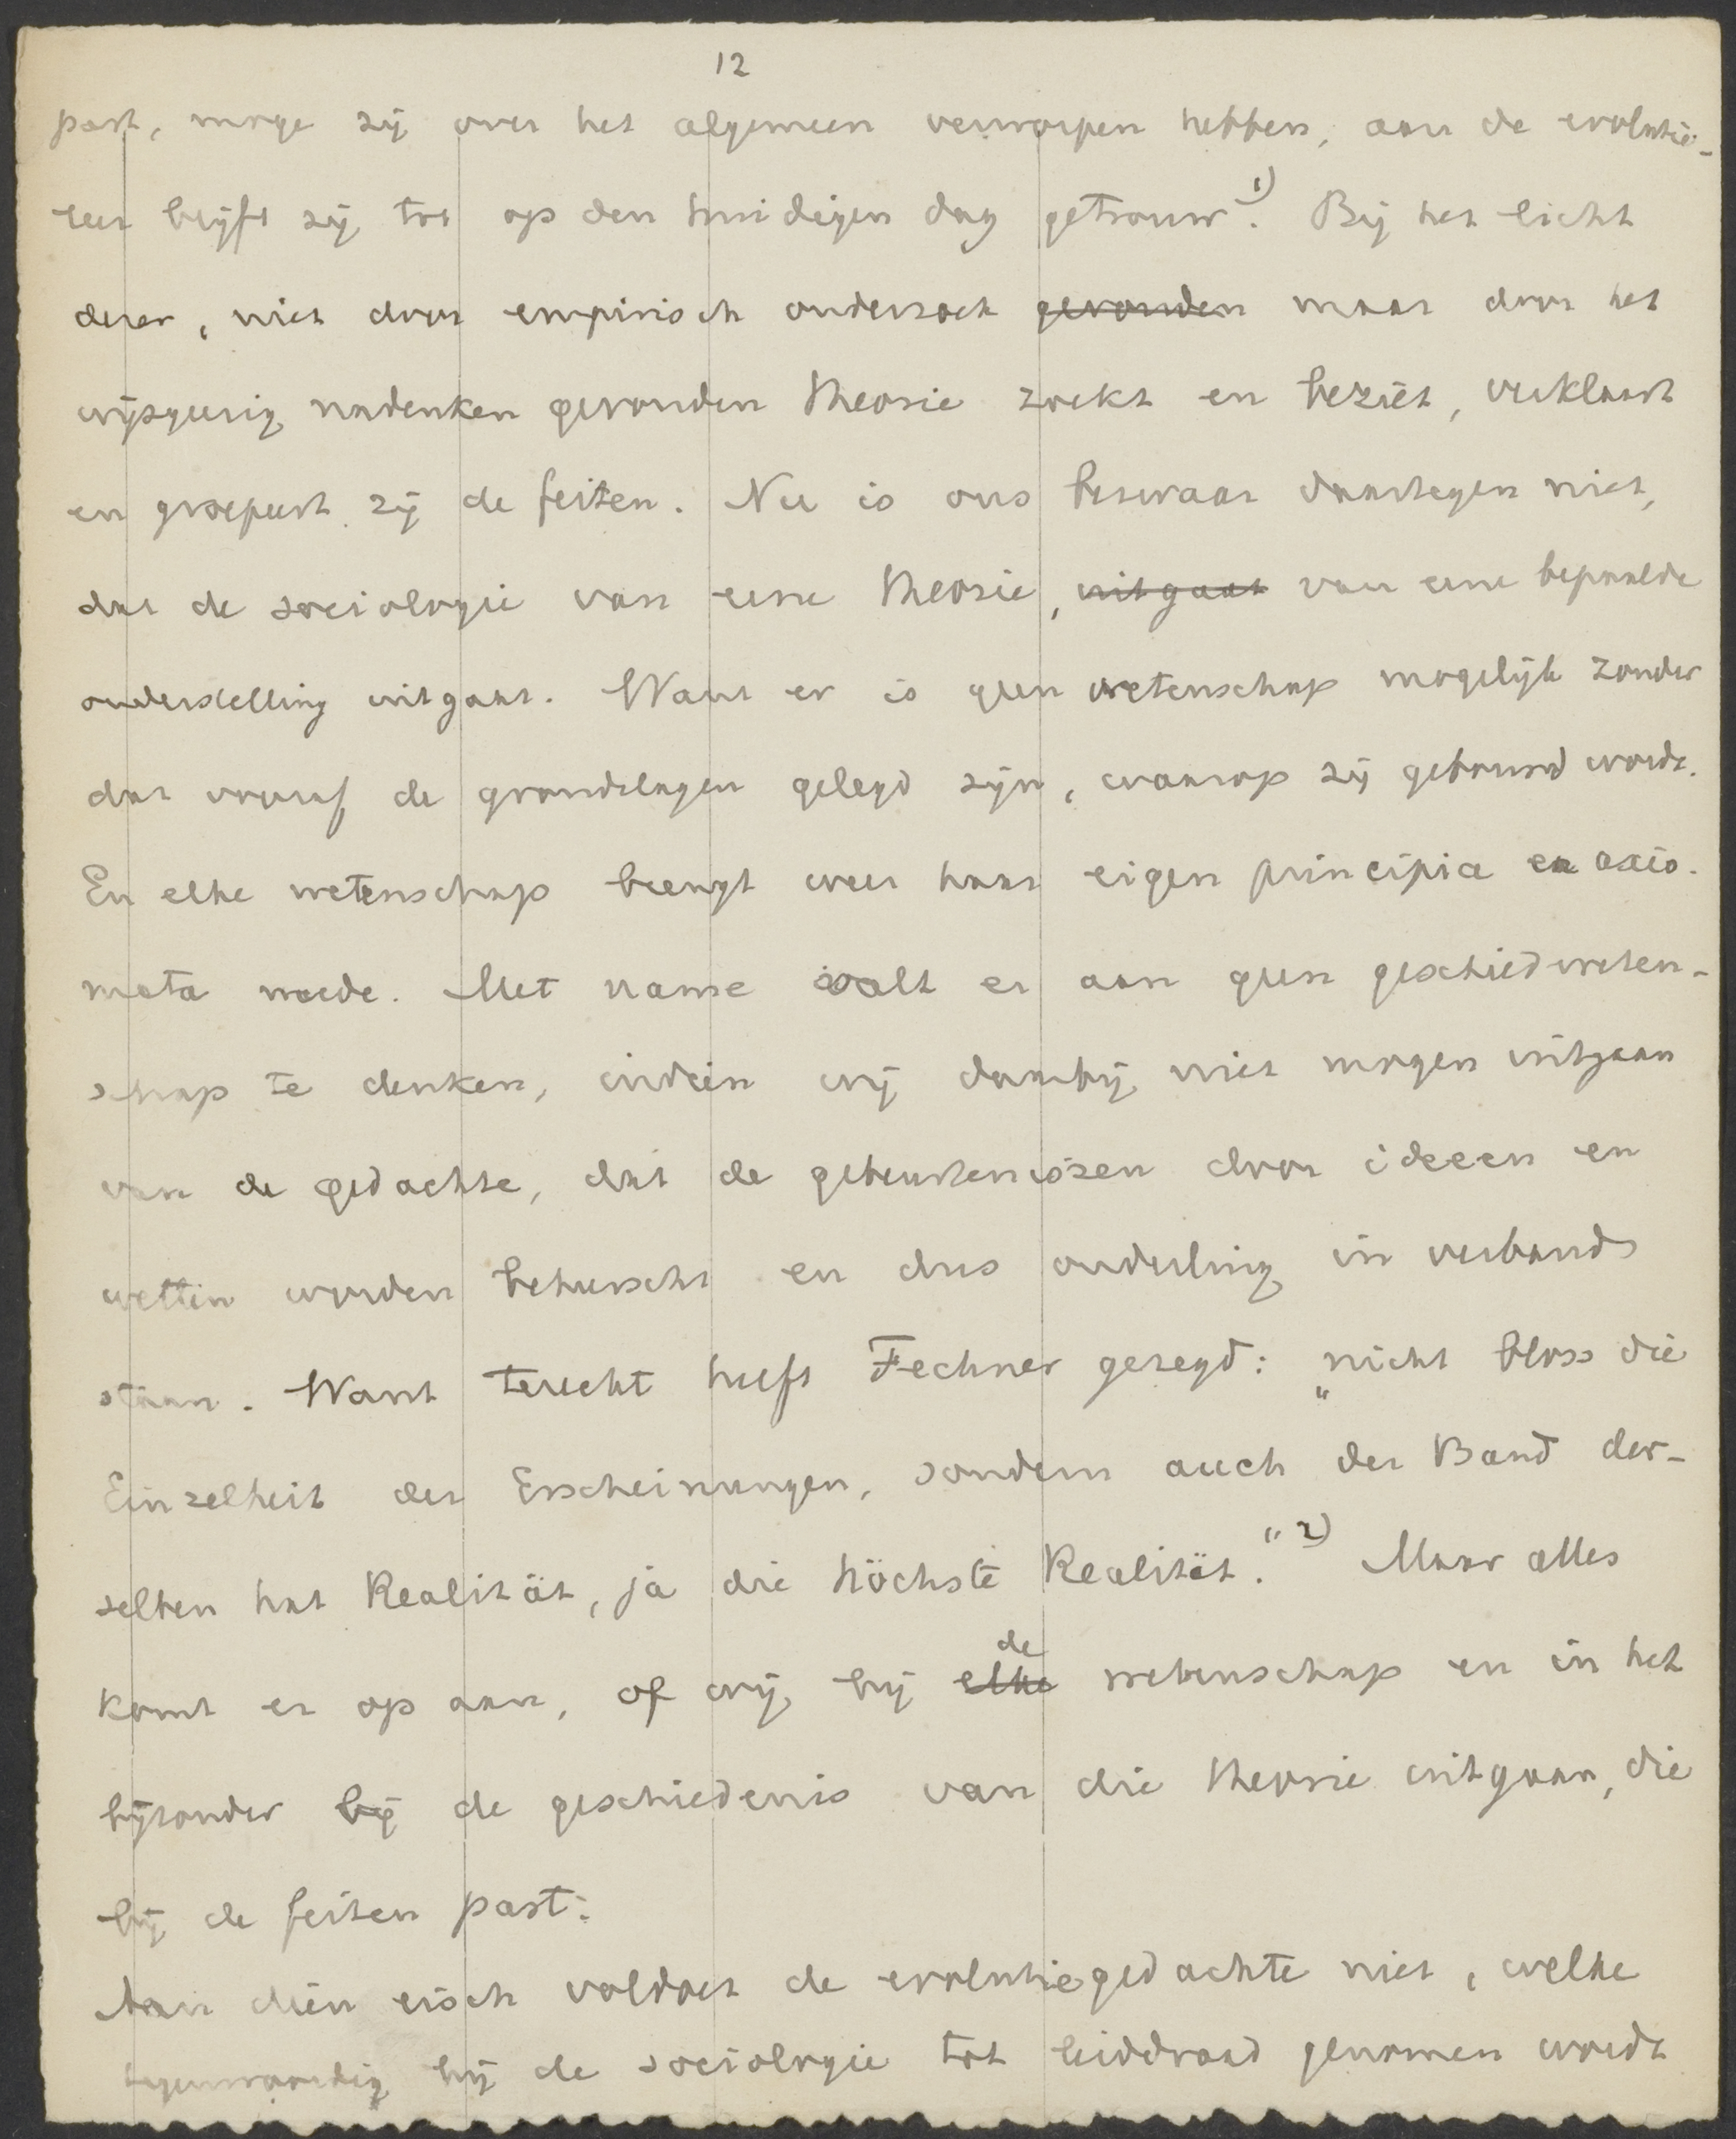 12
past, moge zij over het algemeen verworpen hebben, aan de evolutie-
leer blijft zij tot op den huidigen dag getrouw 1). Bij het licht
dezer, niet door empirisch onderzoek gevonden maar door het
wijsgeerig nadenken gevonden theorie zoekt en beziet, verklaart
en groepeert zij de feiten. Nu is ons bezwaar daartegen niet,
dat de sociologie van eene theorie, uitgaat van eene bepaalde
onderstelling uitgaat. Want er is geen wetenschap mogelijk zonder
dat vooraf de grondslagen gelegd zijn, waarop zij gebouwd wordt.
En elke wetenschap brengt weer haar eigen principia en axio-
mata mede. Met name valt er aan geen geschiedweten-
schap te denken, indien wij daarbij niet mogen uitgaan
van de gedachte, dat de gebeurtenissen door ideeen en
wetten worden beheerscht en dus onderling in verband
staan. Want terecht heeft Fechner gezegd: „nicht bloss die
Einzelheit der Erscheinungen, sondern auch der Band der-
selben hat Realität, ja die höchste Realität." 2) Maar alles
komt er op aan, of wij bij elke de wetenschap en in het
bijzonder bij de geschiedenis van die theorie uitgaan, die
bij de feiten past.
Aan dien eisch voldoet de evolutiegedachte niet, welke
tegenwoordig bij de sociologie tot leiddraad genomen wordt